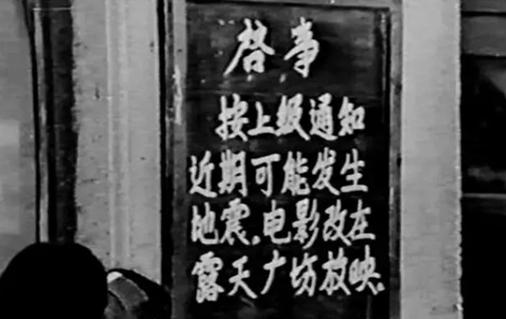 启事
按上级通知
近期可能发生
地震.电影改在
露天广场放映.